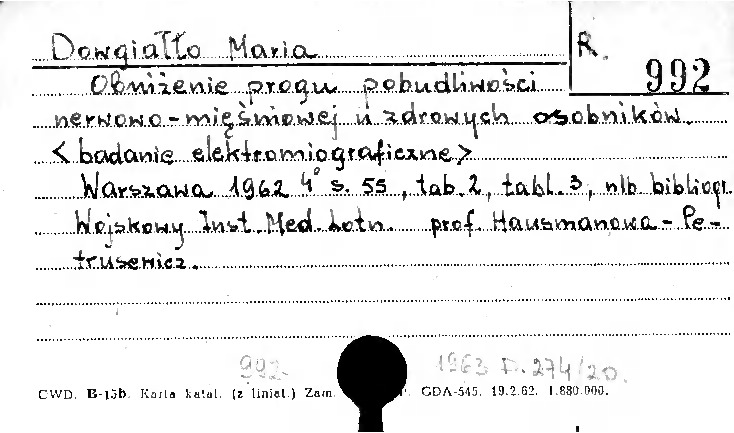 Dowgiałło Maria
R. 992
Obniżenie progu pobudliwości
nerwowo-mięśniowej u zdrowych osobników.
<badanie elektromiograficzne>
Warszawa 1962 4° s. 55, tab. 2, tabl. 3, nlb. bibliogr.
Wojskowy Inst. Med. Lotn. prof. Hausmanowa-Pe-
trusewicz.
992. 1963 D. 274/20.
CWD. B-15b. Karta katal. (z liniat.) Zam. GDA-545. 19.2.62. 1.880.000.